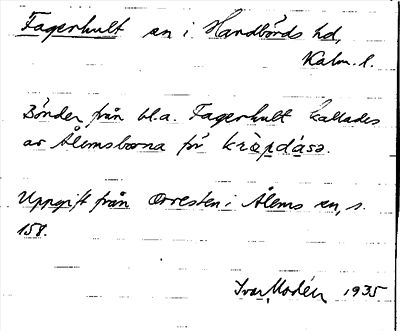 Fagerhult sn i Handbörds hd,
Kalm. l.
Bönder från bl.a. Fagerhult kallades
av Ålemsborna för kràpdása.
Uppgift från Orresten i Ålems sn, s.
158.
Ivar Modéer 1935